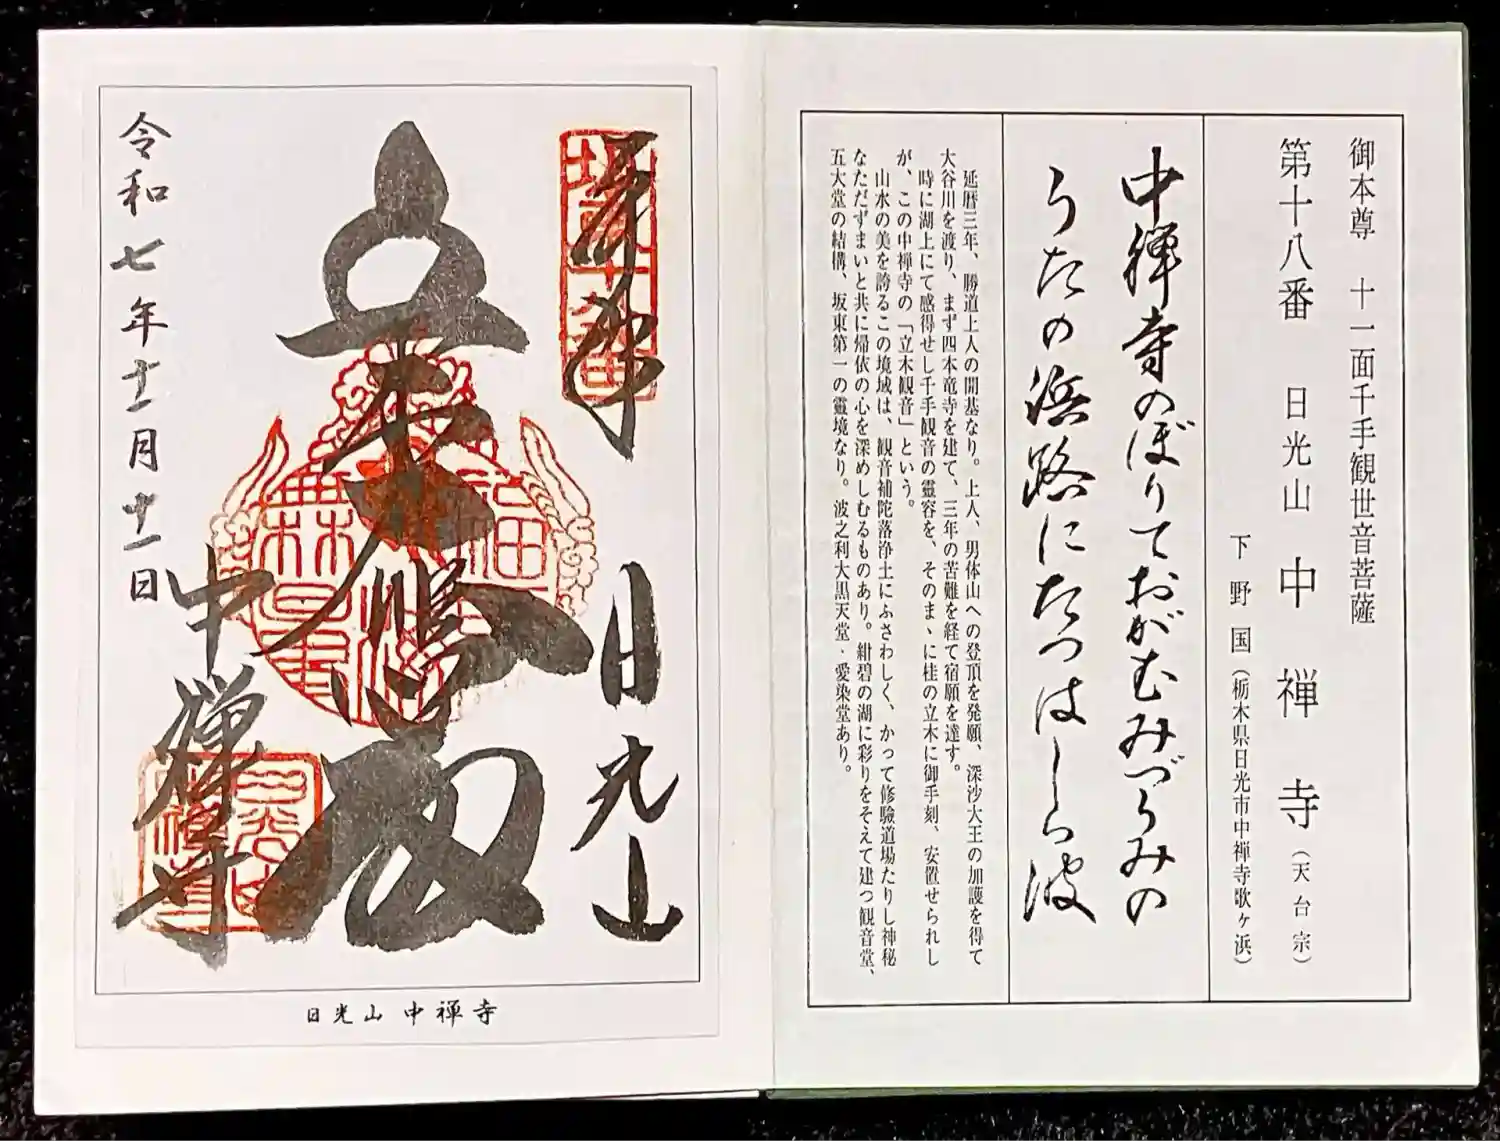 御本尊 十一面千手観世音菩薩
第十八番 日光山 中禅寺(天台宗)
下野国(栃木県日光市中禅寺歌ヶ浜)
中禅寺のぼりておがむみづうみの
うたの浜路にたつはしら波
延暦三年、勝道上人の開基なり。上人、男体山への登頂を発願、深沙大王の加護を得て
大谷川を渡り、まず四本竜寺を建て、三年の苦難を経て宿願を達す。
時に湖上にて感得せし千手観音の霊容を、そのまゝに桂の立木に御手刻、安置せられし
が、この中禅寺の「立木観音」という。
山水の美を誇るこの境域は、観音補陀落浄土にふさわしく、かつて修験道場たりし神秘
なただずまいと共に帰依の心を深めしむるものあり。紺碧の湖に彩りをそえて建つ観音堂、
五大堂の結構、坂東第一の霊境なり。波之利大黒天堂、愛染堂あり。
奉拝
日光山
立木
中禅寺
令和七年十一月十一日
日光山 中禅寺